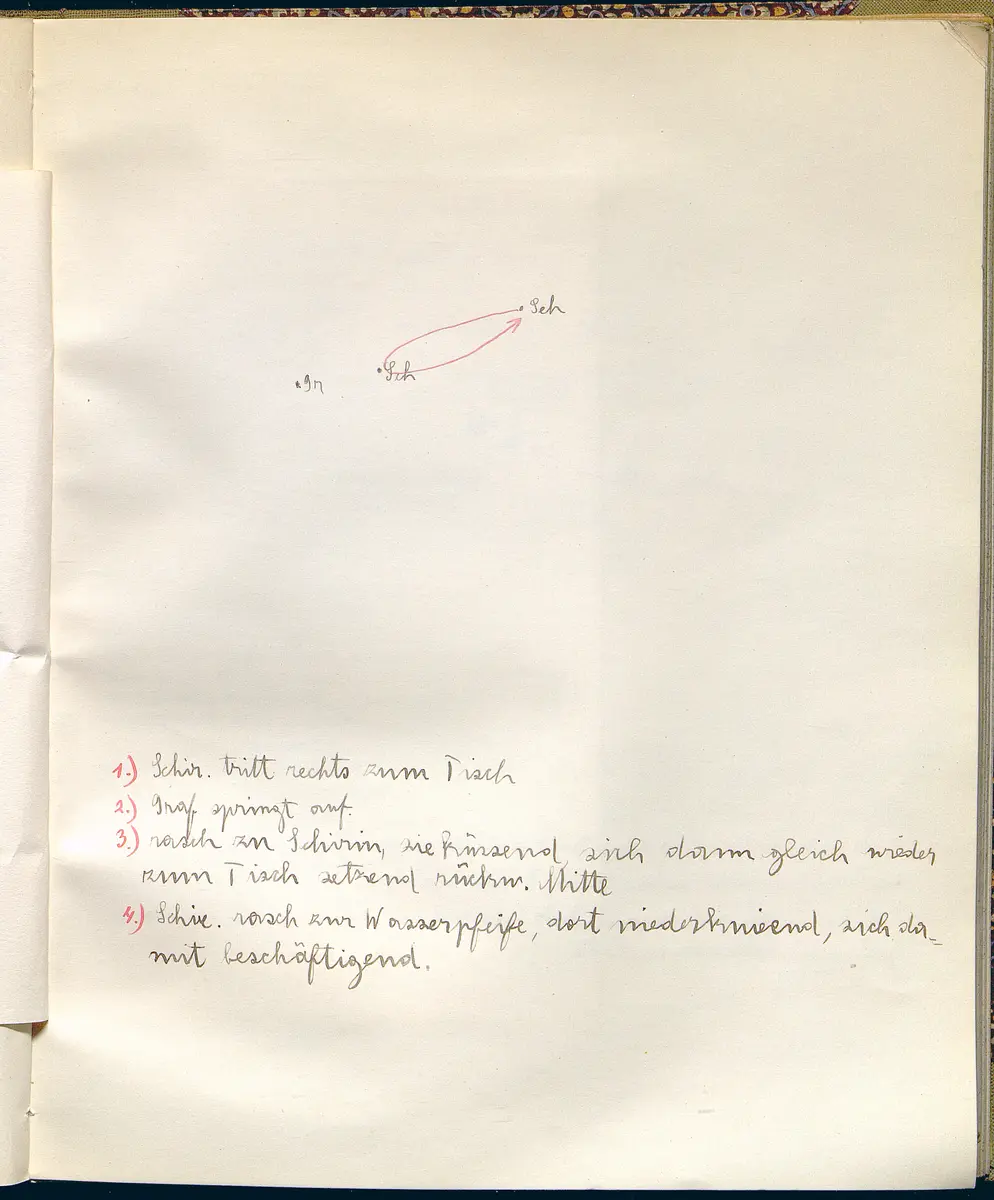 Sch
Sch
Gr
1.) Schir. tritt rechts zum Tisch
2.) Graf springt auf.
3.) rasch zu Schirin, sie küssend, sich dann gleich wieder
zum Tisch setzend rückw. Mitte
4.) Schir. rasch zur Wasserpfeife, dort niederknieend, sich da-
mit beschäftigend.